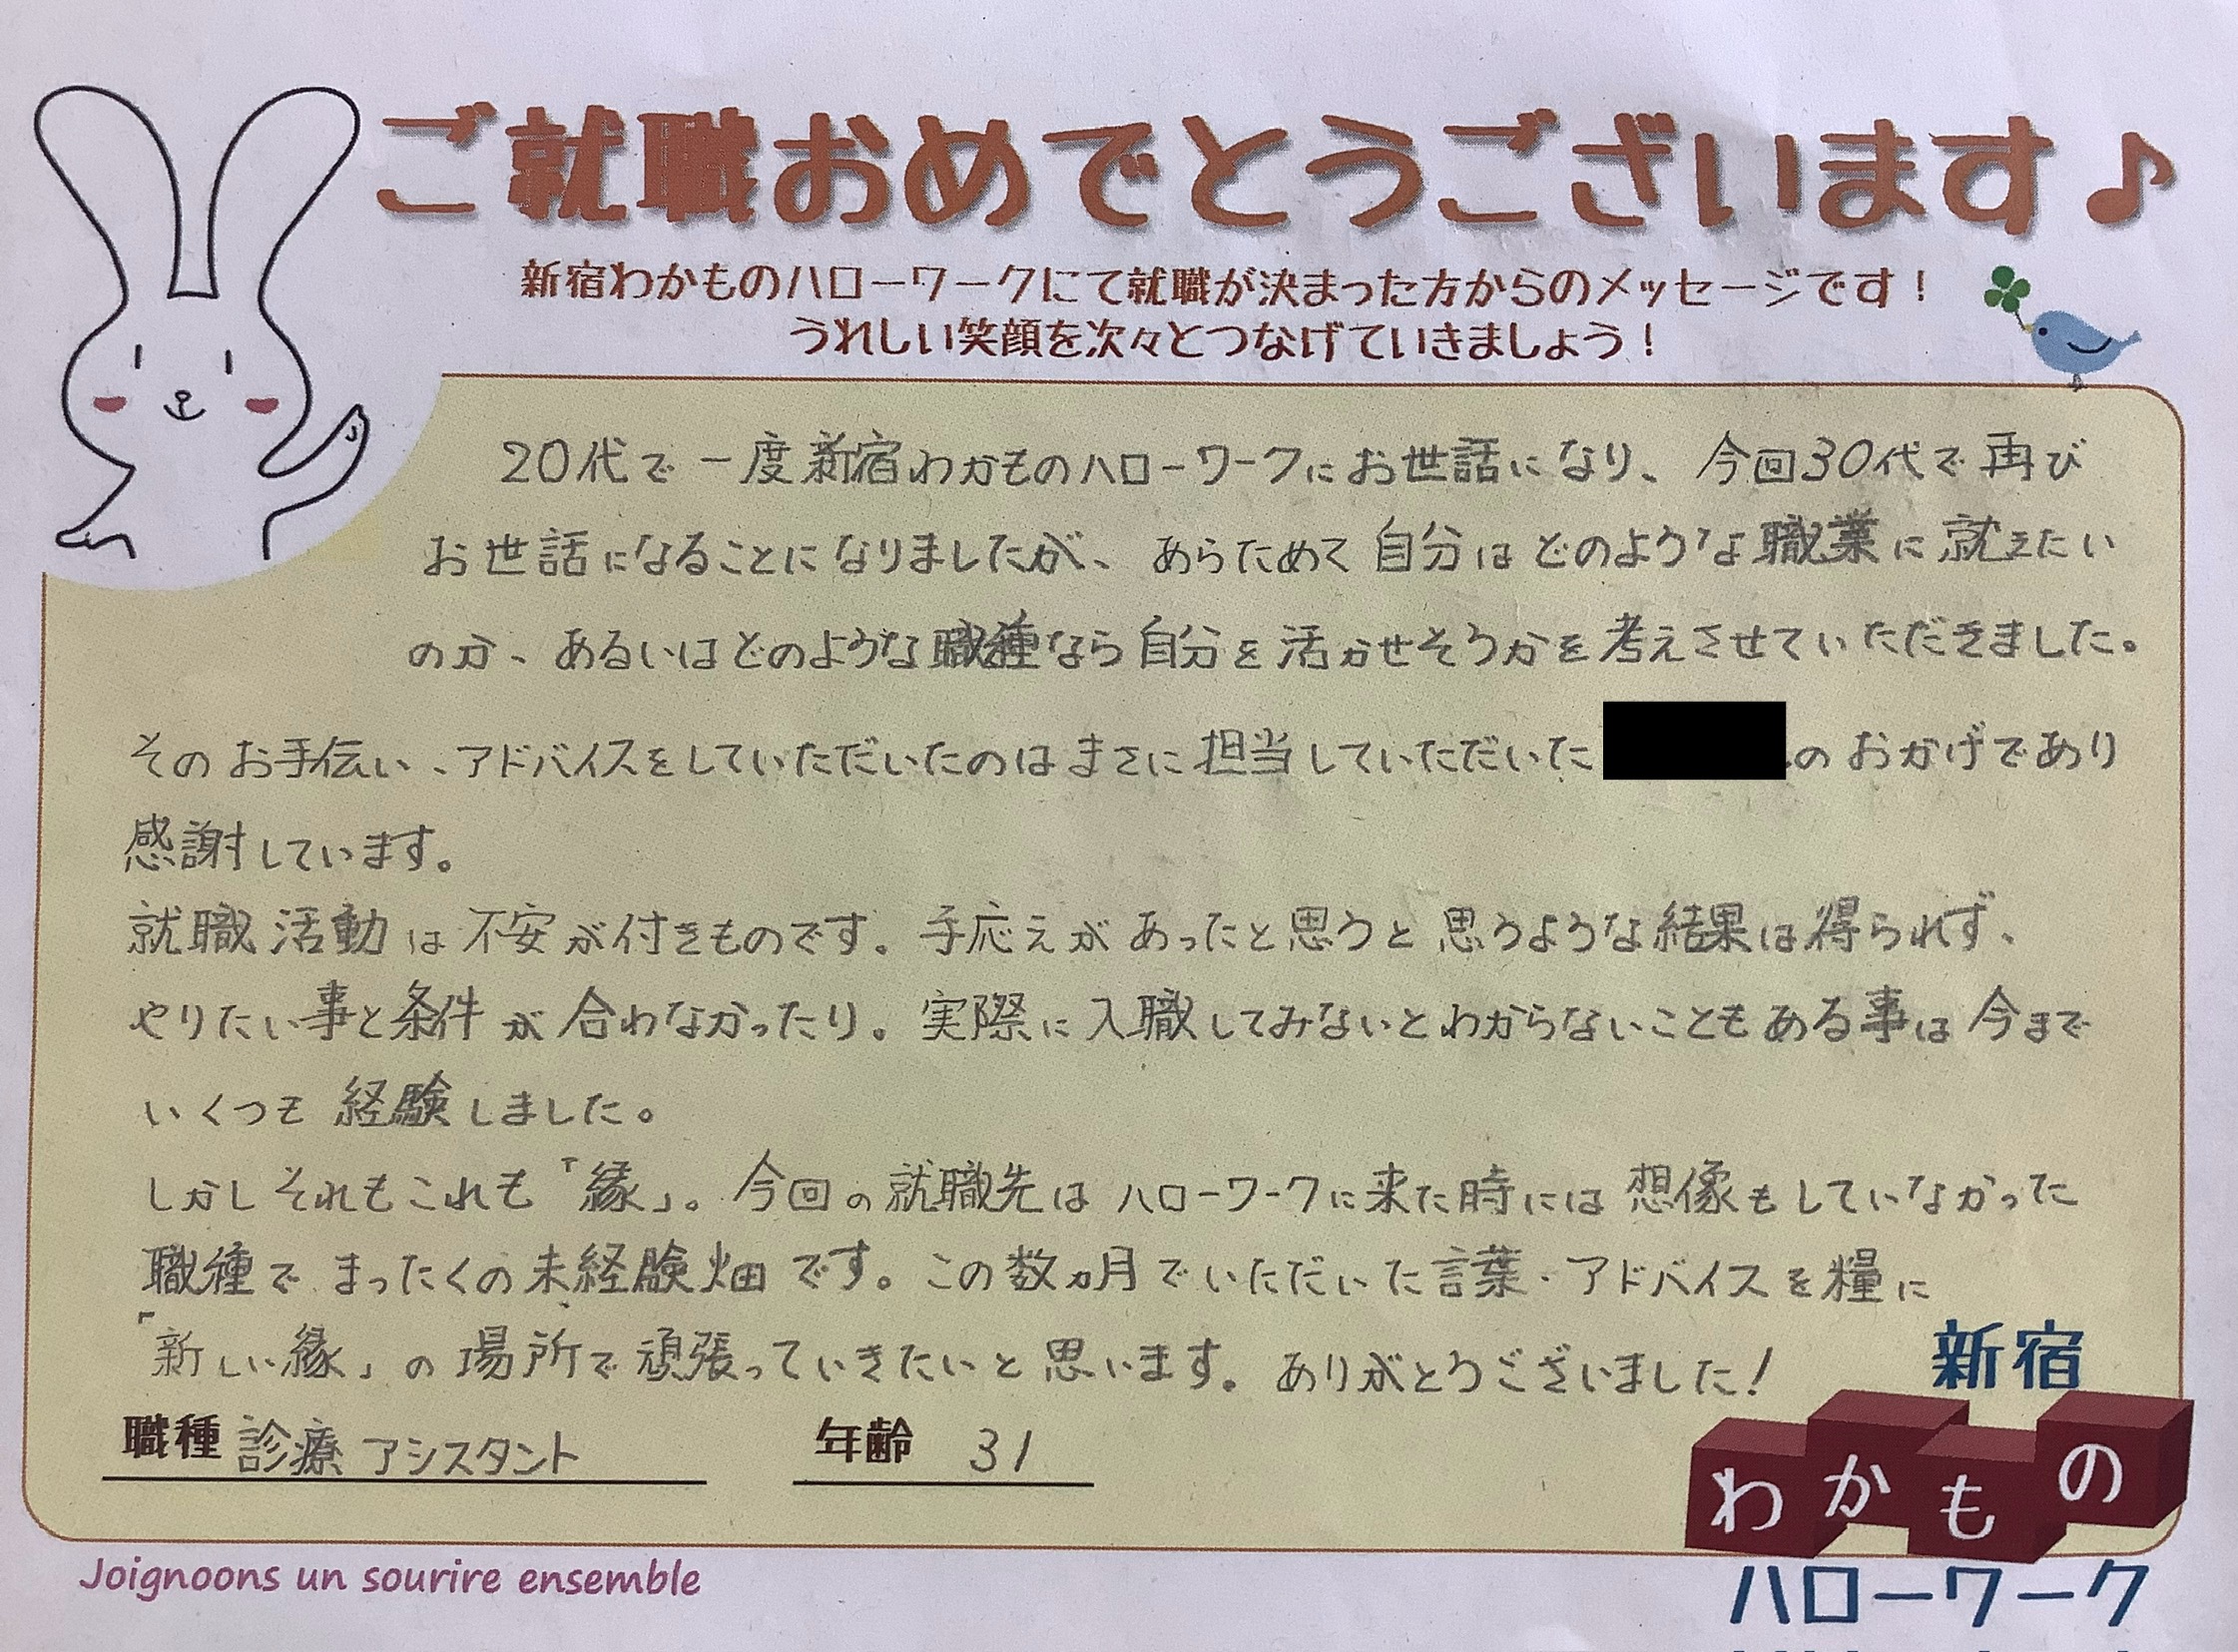 ご就職おめでとうございます♪
新宿わかものハローワークにて就職が決まった方からのメッセージです！
うれしい笑顔を次々とつなげていきましょう！
20代で一度新宿わかものハローワークにお世話になり、今回30代で再び
お世話になることになりましたが、あらためて自分はどのような職業に就きたい
のか、あるいはどのような職種なら自分を活かせそうかを考えさせていただきました。
そのお手伝い、アドバイスをしていただいたのはまさに担当していただいた の おかげであり
感謝しています。
就職活動は不安が付きものです。手応えがあったと思うと思うような結果は得られず、
やりたい事と条件が合わなかったり。実際に入職してみないとわからないこともある事は今まで
いくつも経験しました。
しかしそれもこれも「縁」。今回の就職先はハローワークに来た時には想像もしていなかった
職種でまったくの未経験畑です。この数ヵ月でいただいた言葉・アドバイスを糧に
「新しい縁」の場所で頑張っていきたいと思います。ありがとうございました！
職種 診療アシスタント 年齢 31
新宿
わかもの
ハローワーク
Joignoons un sourire ensemble